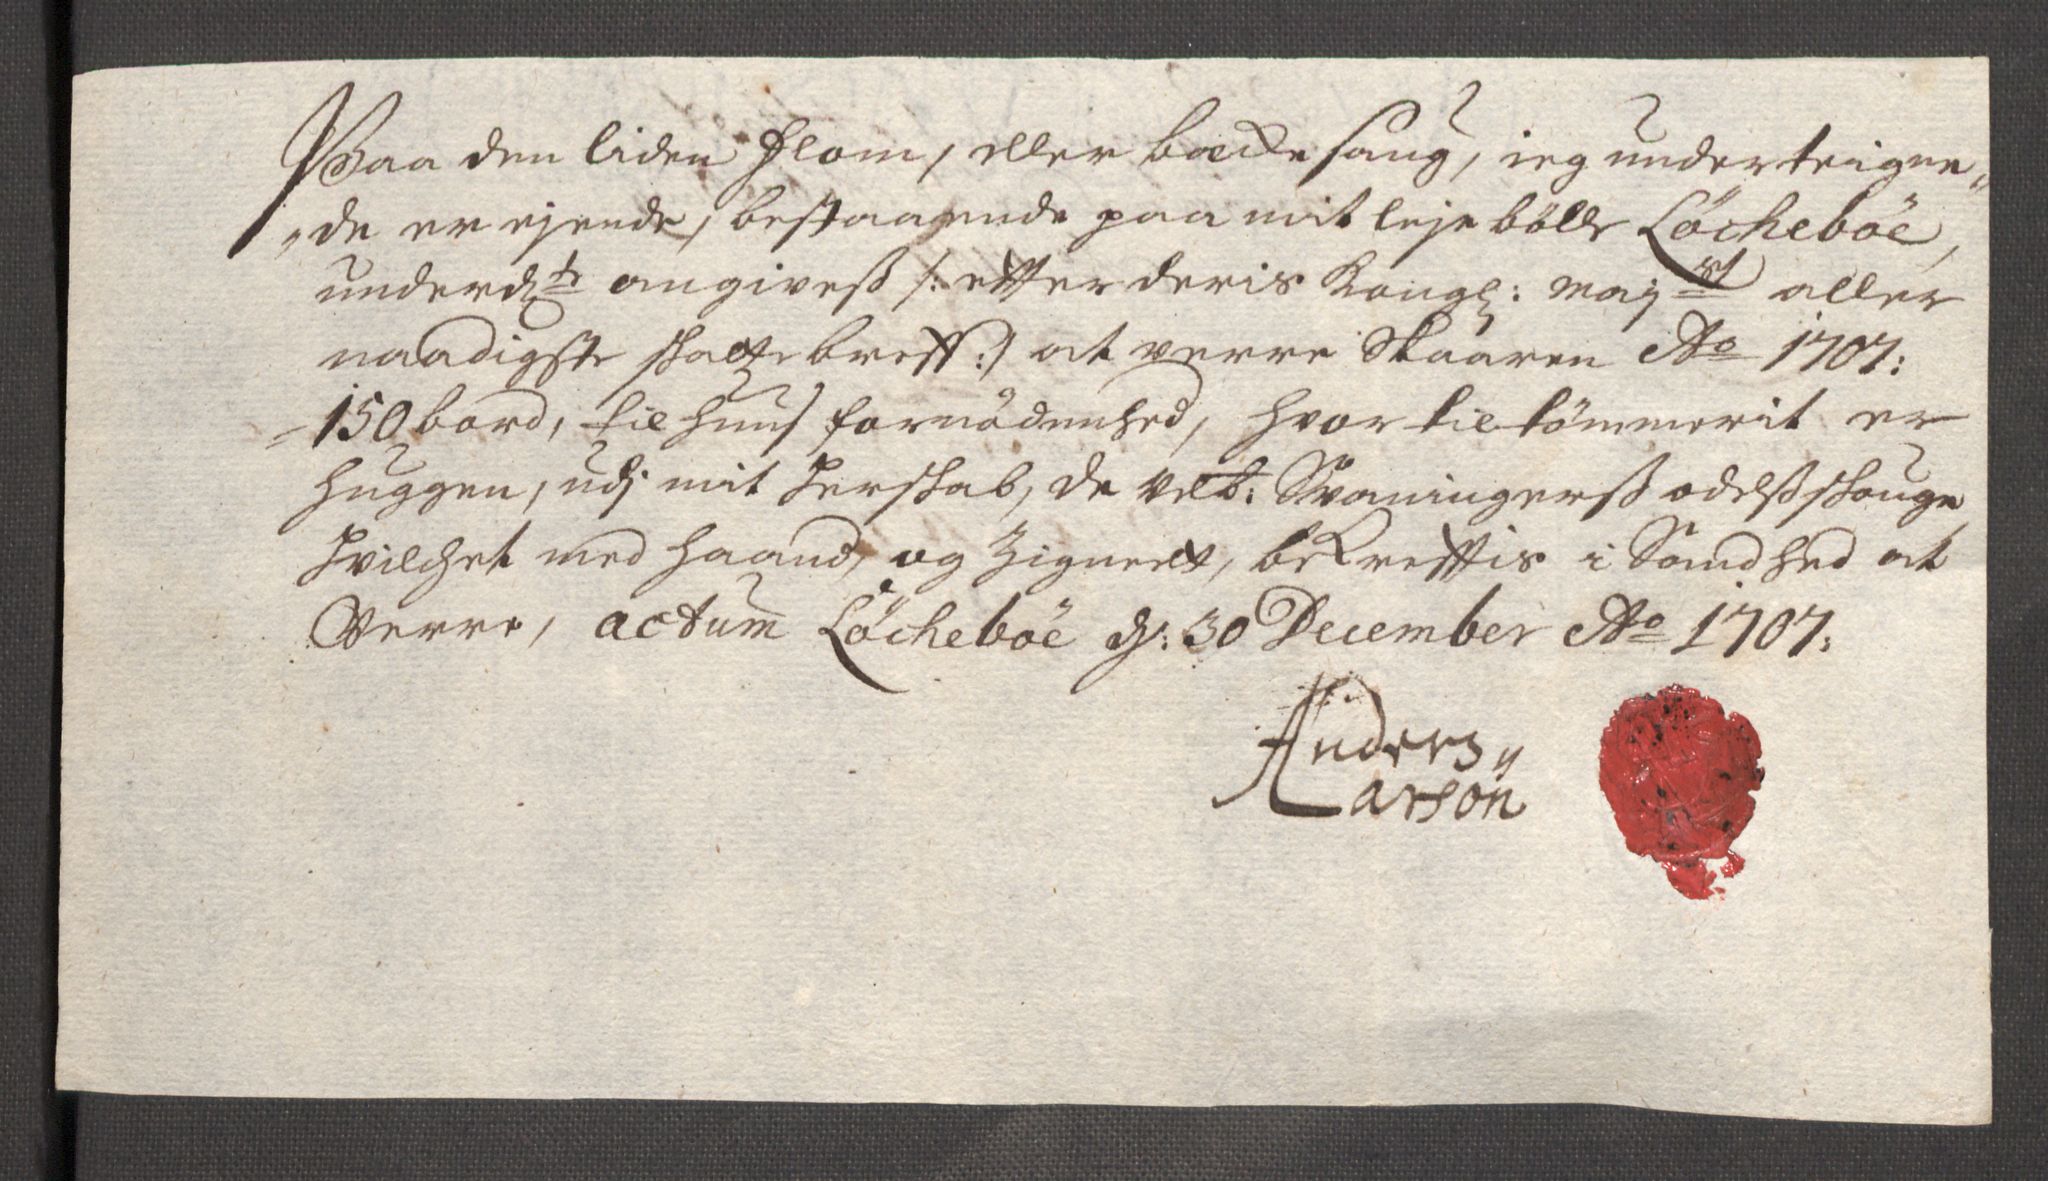 Paa den liden Flom, eller becke saug, ieg underteigne„
„de er ejende, bestaaende paa mit leje bölle Löcheböe,
underdte angivess /: efter deris Kongl: Maijst aller
naadigste skatte breff :/ at verre Skaaren Ao 1707:
-150 bord, til huus fornödenhed, hvor til tömmerit er
huggen, udj mit Herskab, de velb: Svaningerss odelss skouge
Hvilchet med haand, og Zignedt, bekrefftis i Sandhed at
Verre, actum Löcheböe d: 30 December Ao 1707:
Anders„
Larson